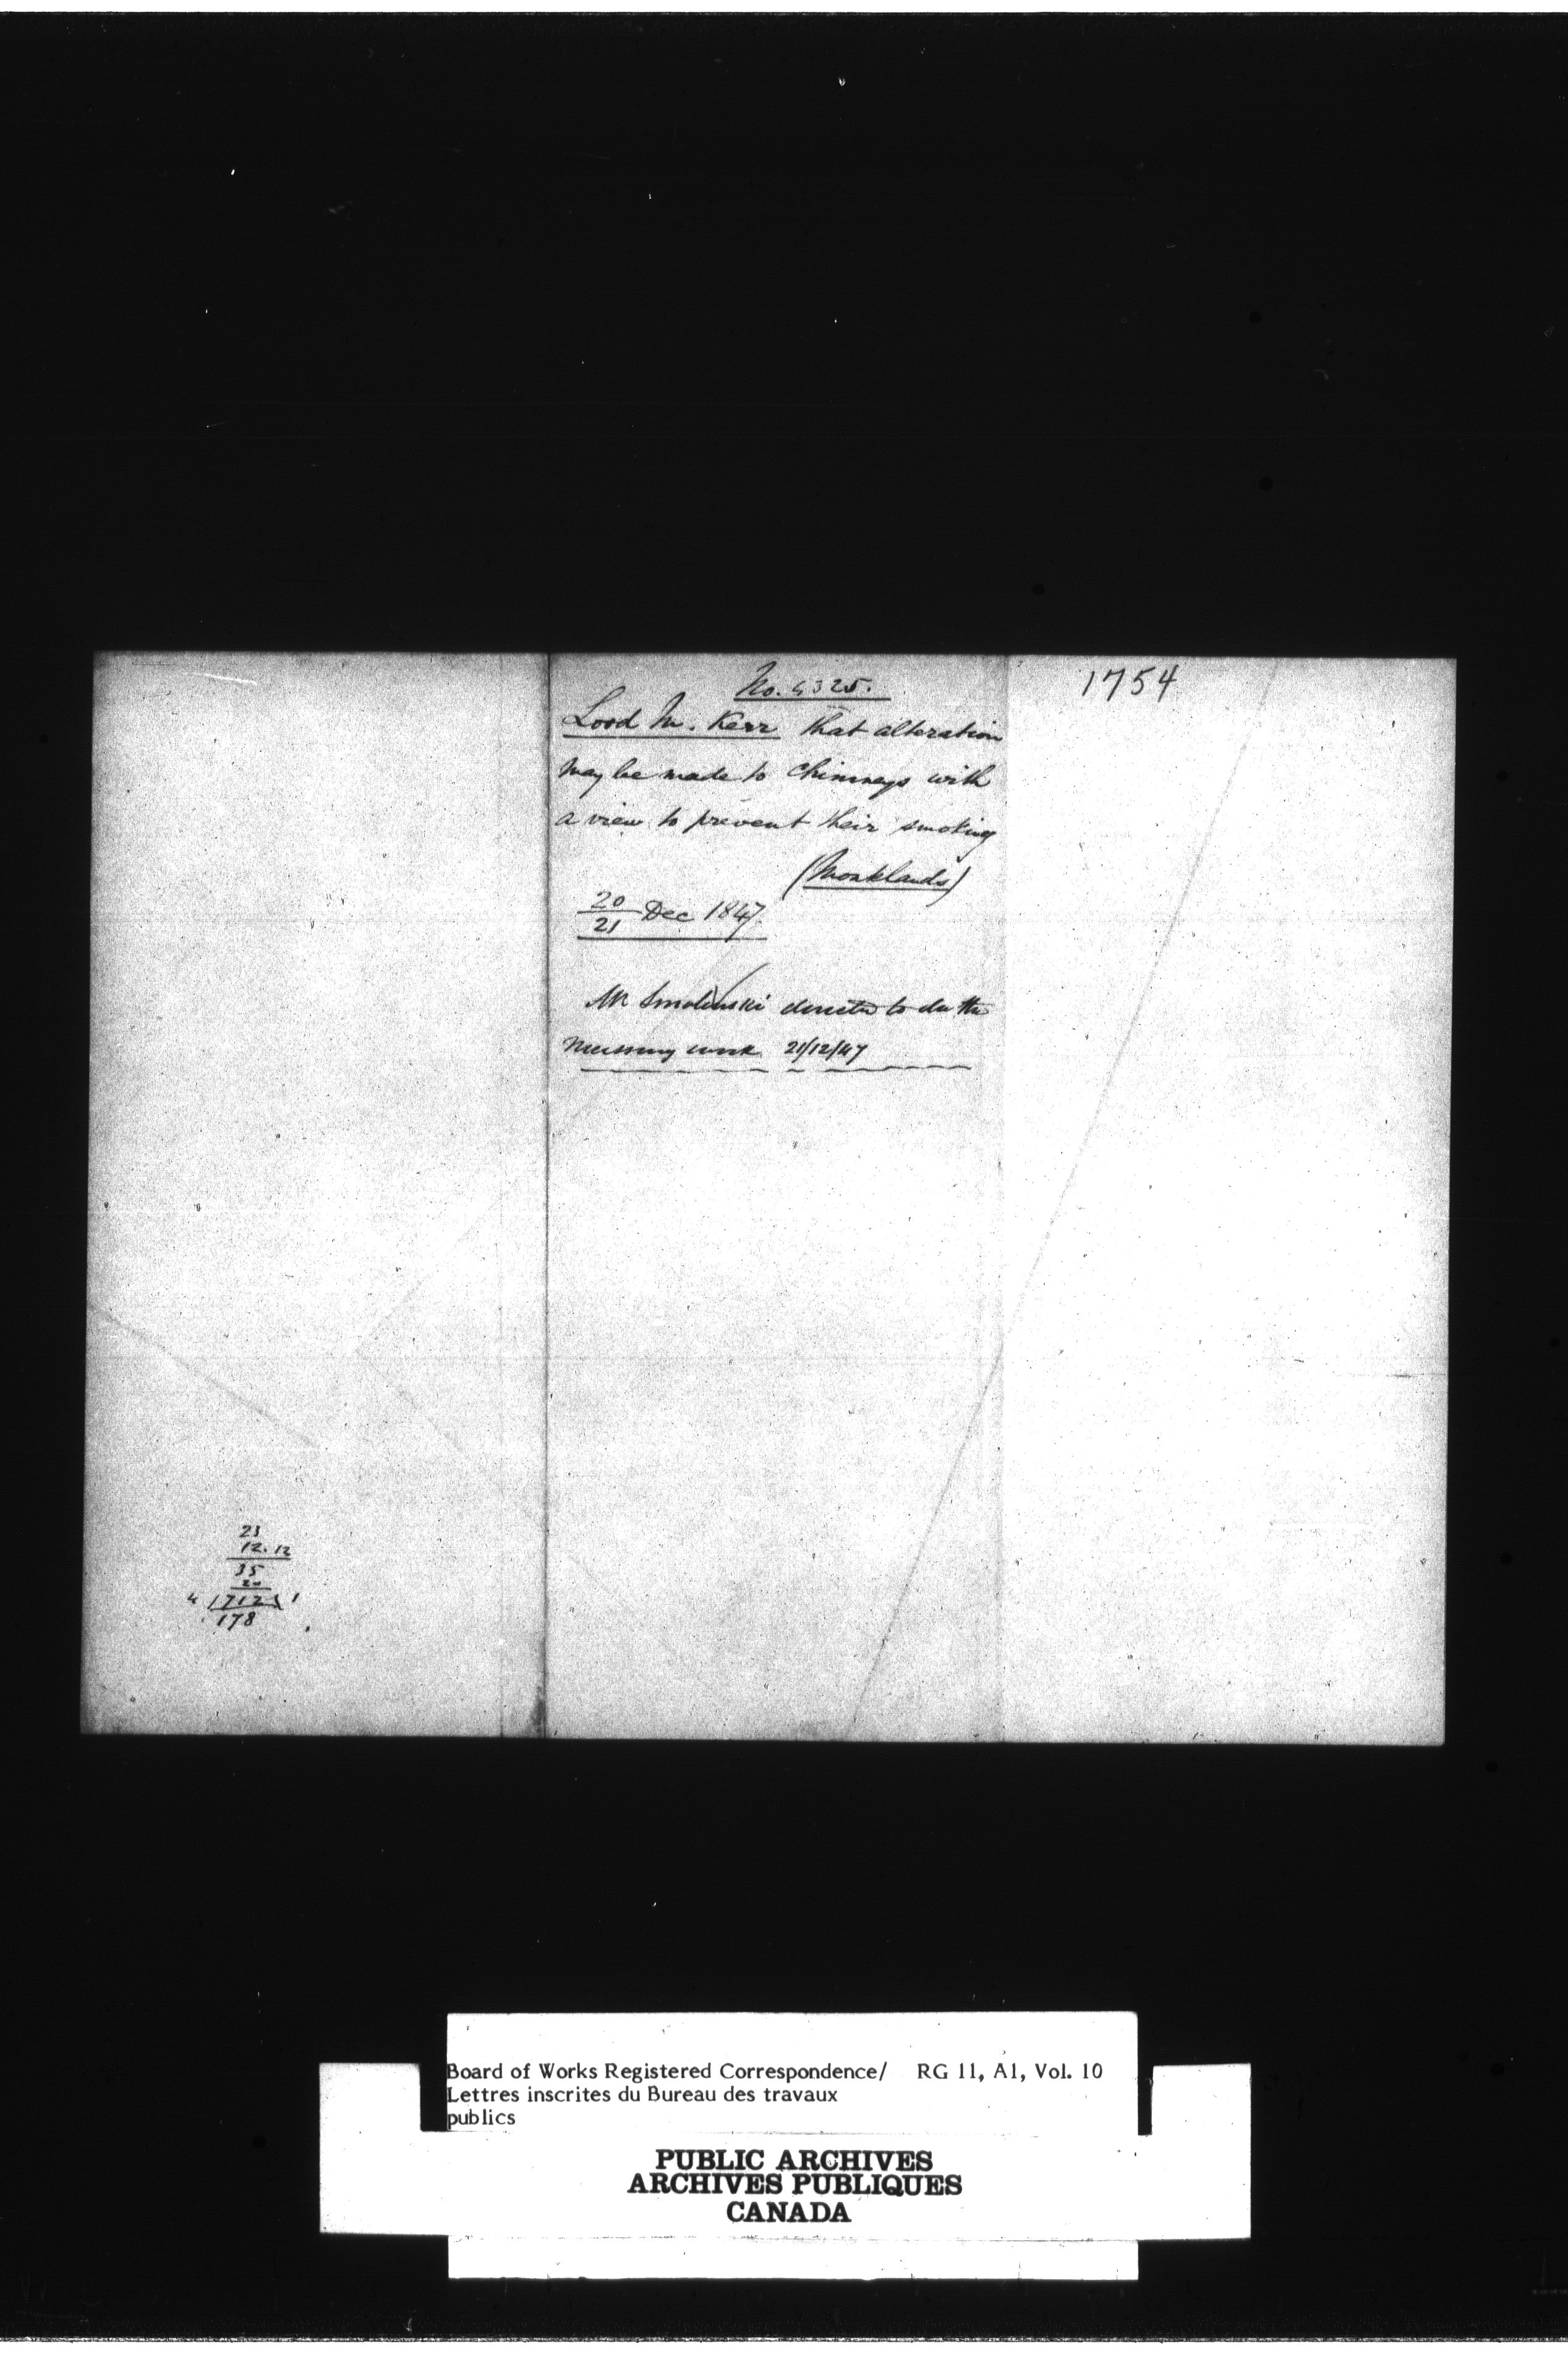 No. 4325.
1754
Lord M. Kerr that alteration
may be made to chimneys with
a view to prevent their smoking
(Monklands)
20
21 Dec 1847.
Mr Smolenski directed to do the
necessary work 21/12/47
23
12.12
35
20
4 /712\ 1
178
Board of Works Registered Correspondence/ RG 11, A1, Vol. 10
Lettres inscrites du Bureau des travaux
publics
PUBLIC ARCHIVES
ARCHIVES PUBLIQUES
CANADA